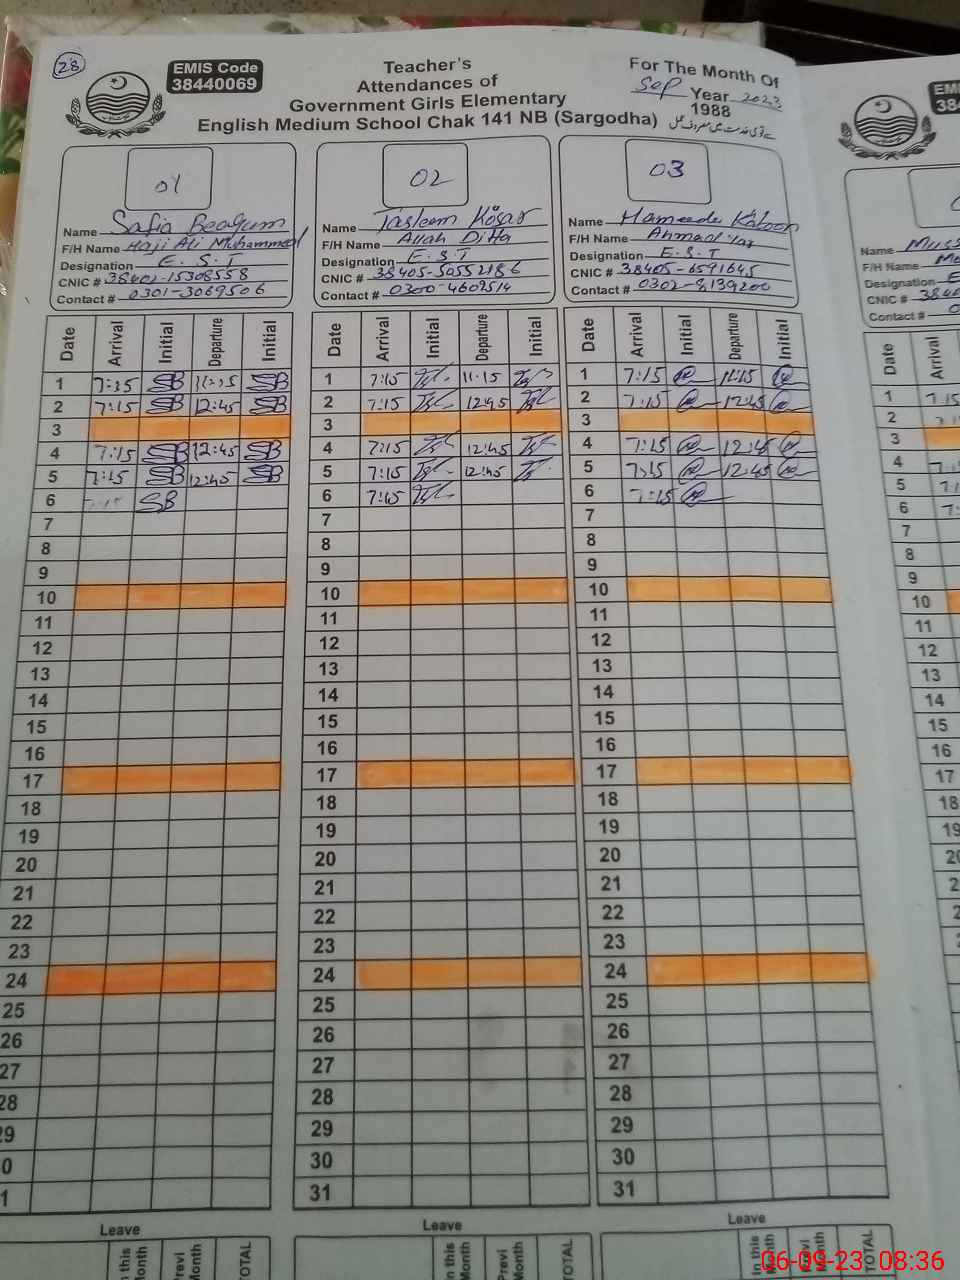 28
EMIS Code
38440069
Teacher's
Attendances of
Government Girls Elementary
English Medium School Chak 141 NB (Sargodha)
For The Month Of
Sep Year 2023
1988
01
Name Safia Beagum
F/H Name Haji Ali Muhammad
Designation E.S.T
CNIC # 38402-15308558
Contact # 0301-3069506
02
Name Tasleem Kosar
F/H Name Allah Ditta
Designation E.S.T
CNIC # 38405-50552186
Contact # 0300-4602514
03
Name Hameeda Katoon
F/H Name Ahmad Yar
Designation E.S.T
CNIC # 38405-6591645
Contact # 0302-8139200
Name
F/H Name
Designation
CNIC #
Contact #
Date Arrival Initial Departure Initial
1 7:15 SB 11:15 SB
2 7:15 SB 12:45 SB
3
4 7:15 SB 12:45 SB
5 7:15 SB 12:45 SB
6 7:15 SB
7
8
9
10
11
12
13
14
15
16
17
18
19
20
21
22
23
24
25
26
27
28
29
0
1
Date Arrival Initial Departure Initial
1 7:15 11:15
2 7:15 12:45
3
4 7:15 12:45
5 7:15 12:45
6 7:15
7
8
9
10
11
12
13
14
15
16
17
18
19
20
21
22
23
24
25
26
27
28
29
30
31
Date Arrival Initial Departure Initial
1 7:15 11:15
2 7:15 12:45
3
4 7:15 12:45
5 7:15 12:45
6 7:15
7
8
9
10
11
12
13
14
15
16
17
18
19
20
21
22
23
24
25
26
27
28
29
30
31
Date Arrival
1 7:15
2
3
4
5
6
7
8
9
10
11
12
13
14
15
16
17
18
19
Leave
in this Month Previ Month TOTAL
Leave
in this Month Previ Month TOTAL
Leave
in this Month Previ Month TOTAL
06-09-23 08:36